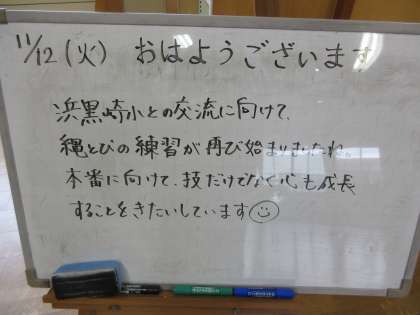 11/12(火) おはようございます
浜黒崎小との交流に向けて、
縄とびの練習が再び始まりましたね。
本番に向けて、技だけでなく心も成長
することをきたいしています